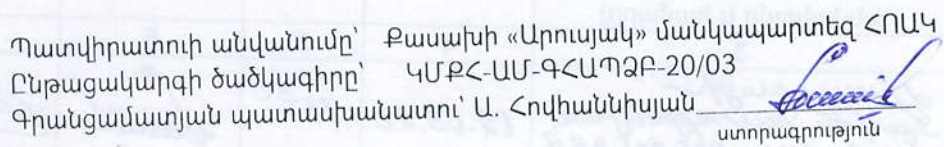 Պատվիրատուի անվանումը՝ Քասախի «Արուսյակ» մանկապարտեզ ՀՈԱԿ
Ընթացակարգի ծածկագիրը՝ ԿՄՔՀ-ԱՄ-ԳՀԱՊՁԲ-20/03
Գրանցամատյան պատասխանատու՝ Ա. Հովհաննիսյան
ստորագրություն